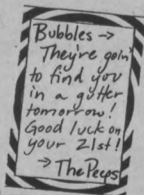 Bubbles →
They're goin'
to find you
in a gutter
tomorrow!
Good luck on
your 21st!
→ The Peeps